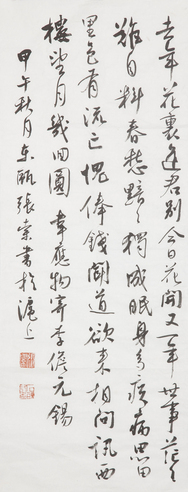 去年花裏逢君别今日花開又一年世事茫々
難自料春愁黯々獨成眠身多疾病思田
里邑有流亡愧俸錢聞道欲来相問訊西
樓望月幾回圓 韋應物寄李儋元錫
甲午秋月 張索書於滬上